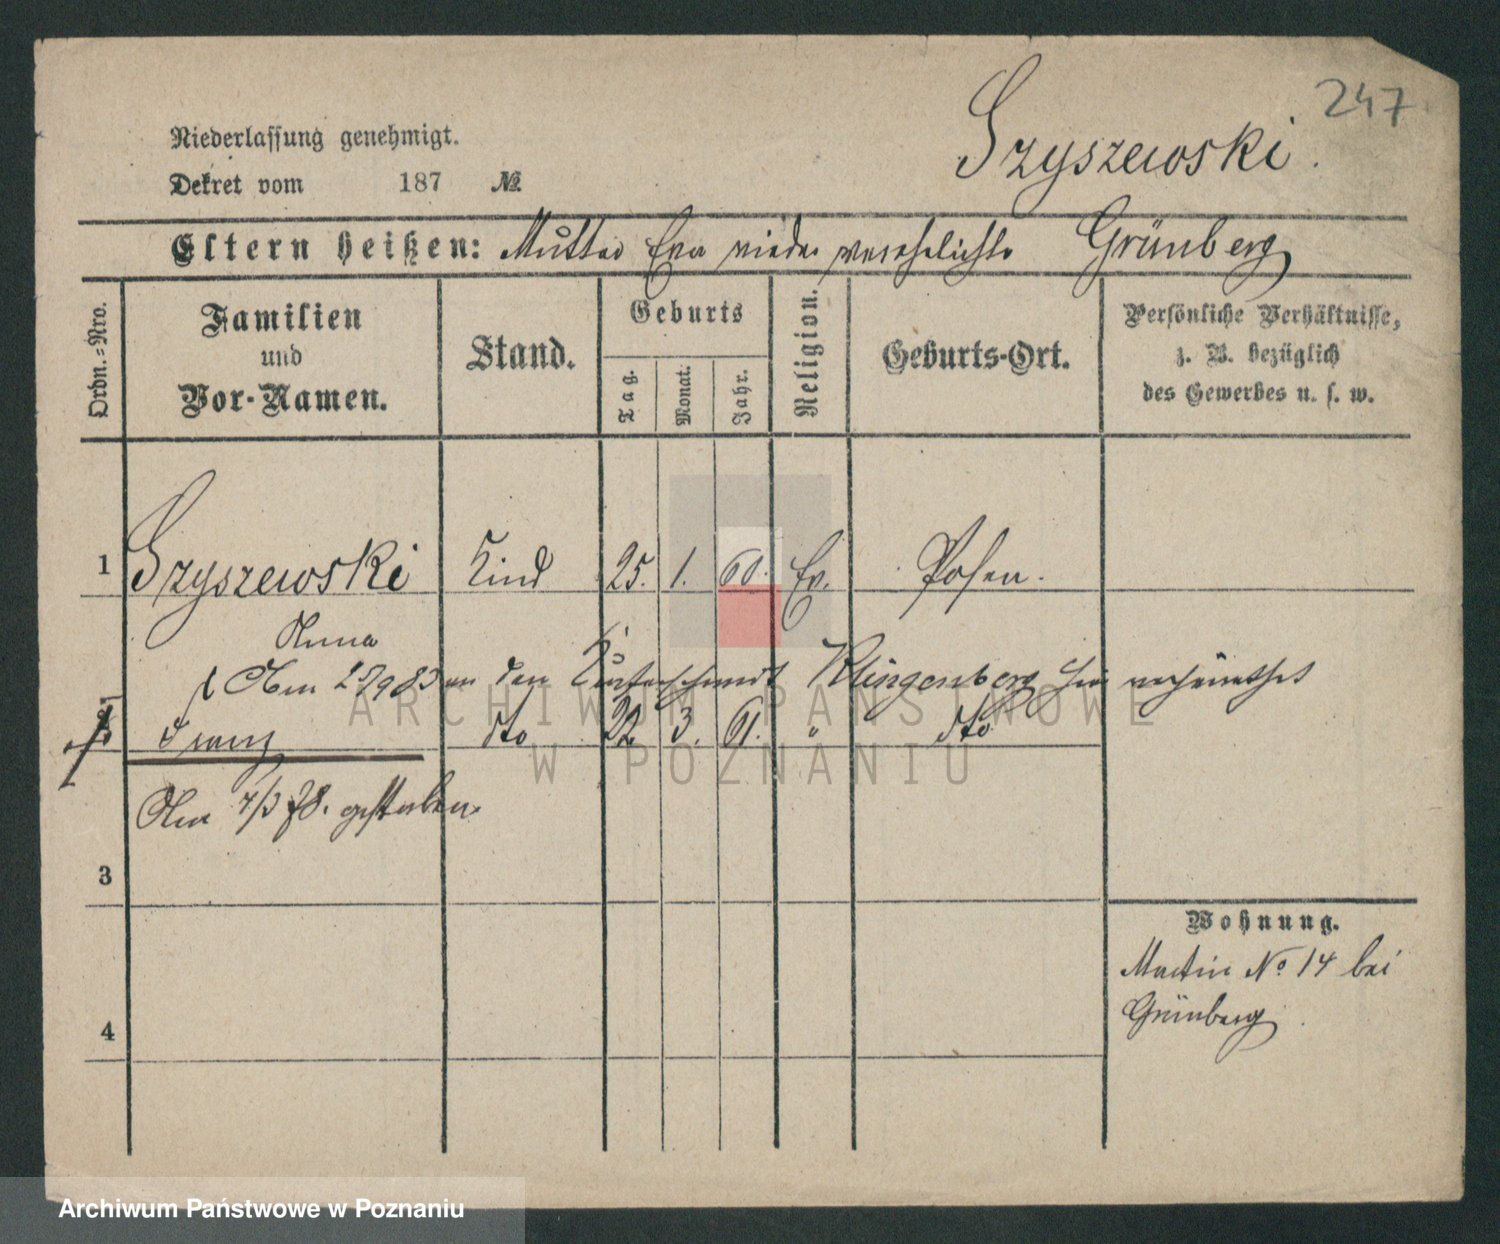 247
Szyszewski.
Niederlassung genehmigt.
Dekret vom 187 №
Eltern heißen: Mutter Eva wieder verehelichte Grünberg
Ordn.=Nro.
Familien und Vor-Namen.
Stand.
Geburts
Tag.
Monat.
Jahr.
Religion.
Geburts-Ort.
Persönliche Verhältnisse, z. B. bezüglich des Gewerbes u. s. w.
1 Szyszewski Kind 25. 1. 60. Ev. Posen.
Anna
Am 25/9 83 an den Klingenberg hier verheirathet
Franz dto 22 3. 61. " dto
Am 4/3 78. gestorben
3
4
Wohnung.
Martin No 14 bei
Grünberg
ARCHIWUM PAŃSTWOWE
W POZNANIU
Archiwum Państwowe w Poznaniu